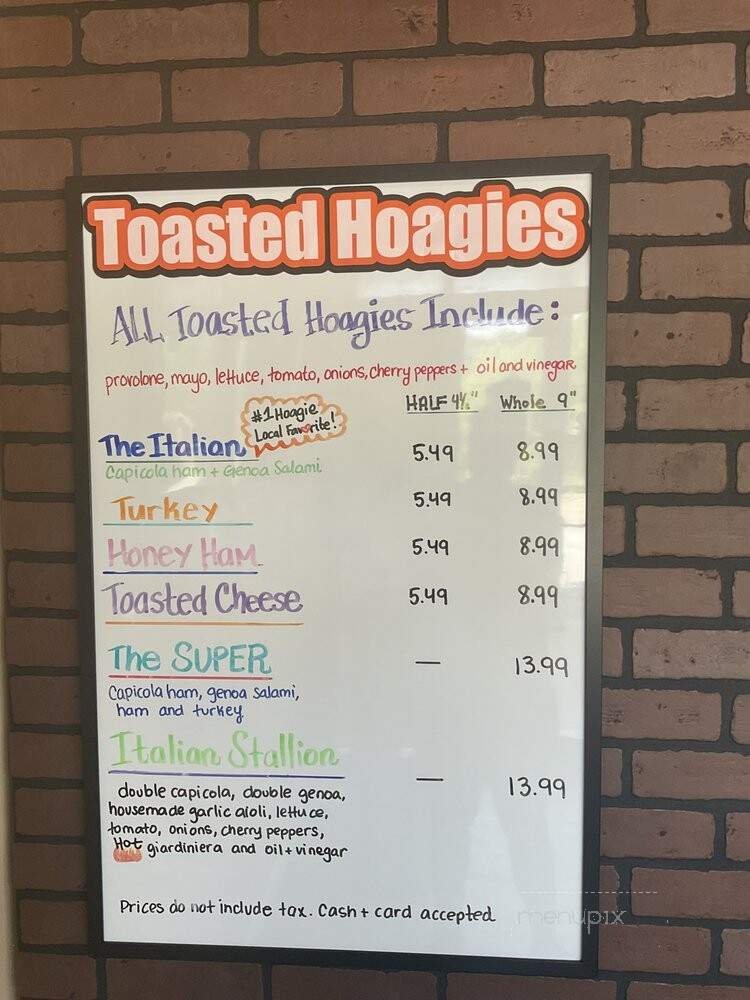 Toasted Hoagies
ALL Toasted Hoagies Include:
provolone, mayo, lettuce, tomato, onions, cherry peppers + oil and vinegar
HALF 4½" Whole 9"
#1 Hoagie
Local Favorite!
The Italian 5.49 8.99
Capicola ham + Genoa Salami
Turkey 5.49 8.99
Honey Ham 5.49 8.99
Toasted Cheese 5.49 8.99
The SUPER — 13.99
Capicola ham, genoa salami,
ham and turkey
Italian Stallion — 13.99
double capicola, double genoa,
housemade garlic aioli, lettuce,
tomato, onions, cherry peppers,
Hot giardiniera and oil + vinegar
Prices do not include tax. Cash + card accepted
menupix